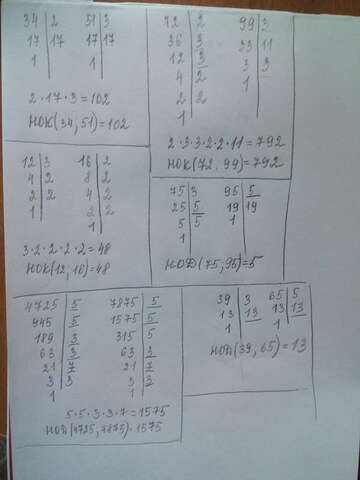 34 | 2 51 | 3
17 | 17 17 | 17
1 | 1 |
2·17·3=102
НОК(34,51)=102
72 | 2 99 | 3
36 | 3 33 | 11
12 | 3 3 | 3
4 | 2 1 |
2 | 2
1 |
2·3·3·2·2·11=792
НОК(72.99)=792
12 | 3 16 | 2
4 | 2 8 | 2
2 | 2 4 | 2
1 | 2 | 2
1 |
3·2·2·2·2=48
НОК(12,16)=48
75 | 3 95 | 5
25 | 5 19 | 19
5 | 5 1 |
1 |
НОД(75,95)=5
4725 | 5 7875 | 5
945 | 5 1575 | 5
189 | 3 315 | 5
63 | 3 63 | 3
21 | 7 21 | 7
3 | 3 3 | 3
1 | 1 |
5·5·3·3·7=1575
НОД(4725;7875)=1575
39 | 3 65 | 5
13 | 13 13 | 13
1 | 1 |
НОД(39,65)=13